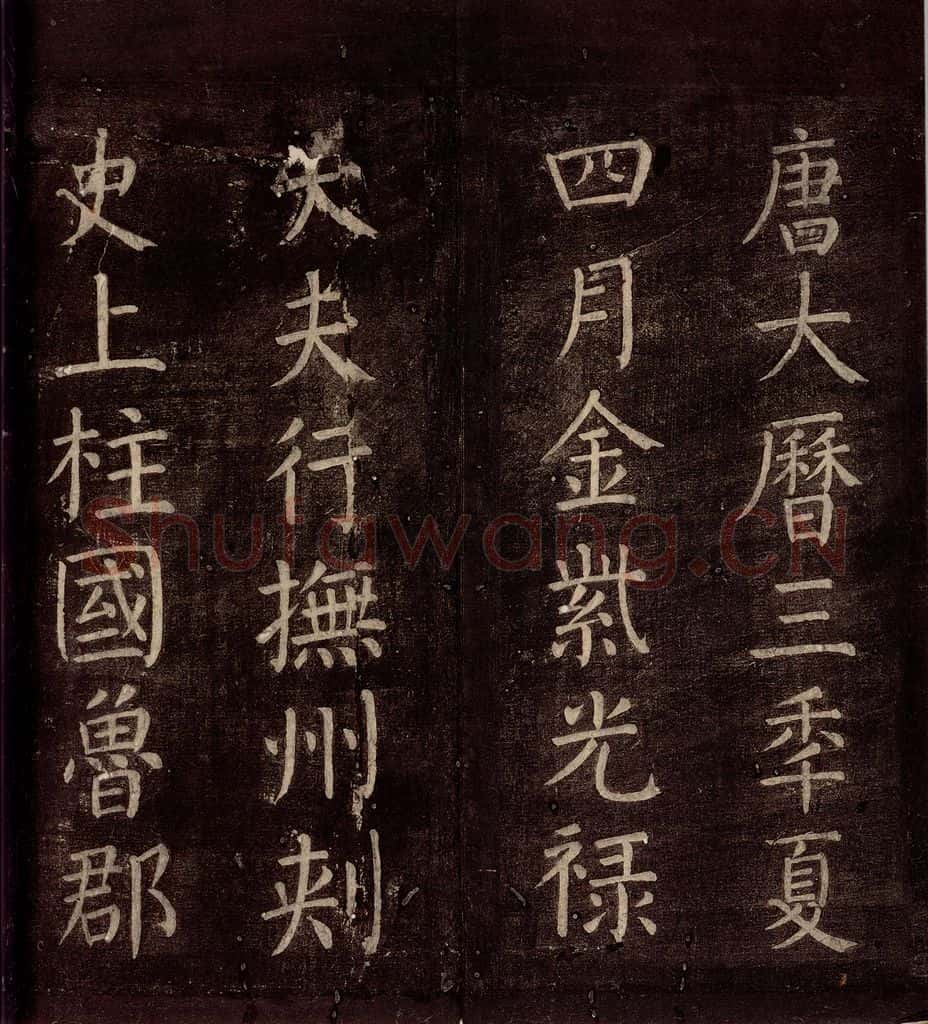 唐大曆三秊夏
四月金紫光禄
大夫行撫州刾
史上柱國魯郡
Shufawang.CN